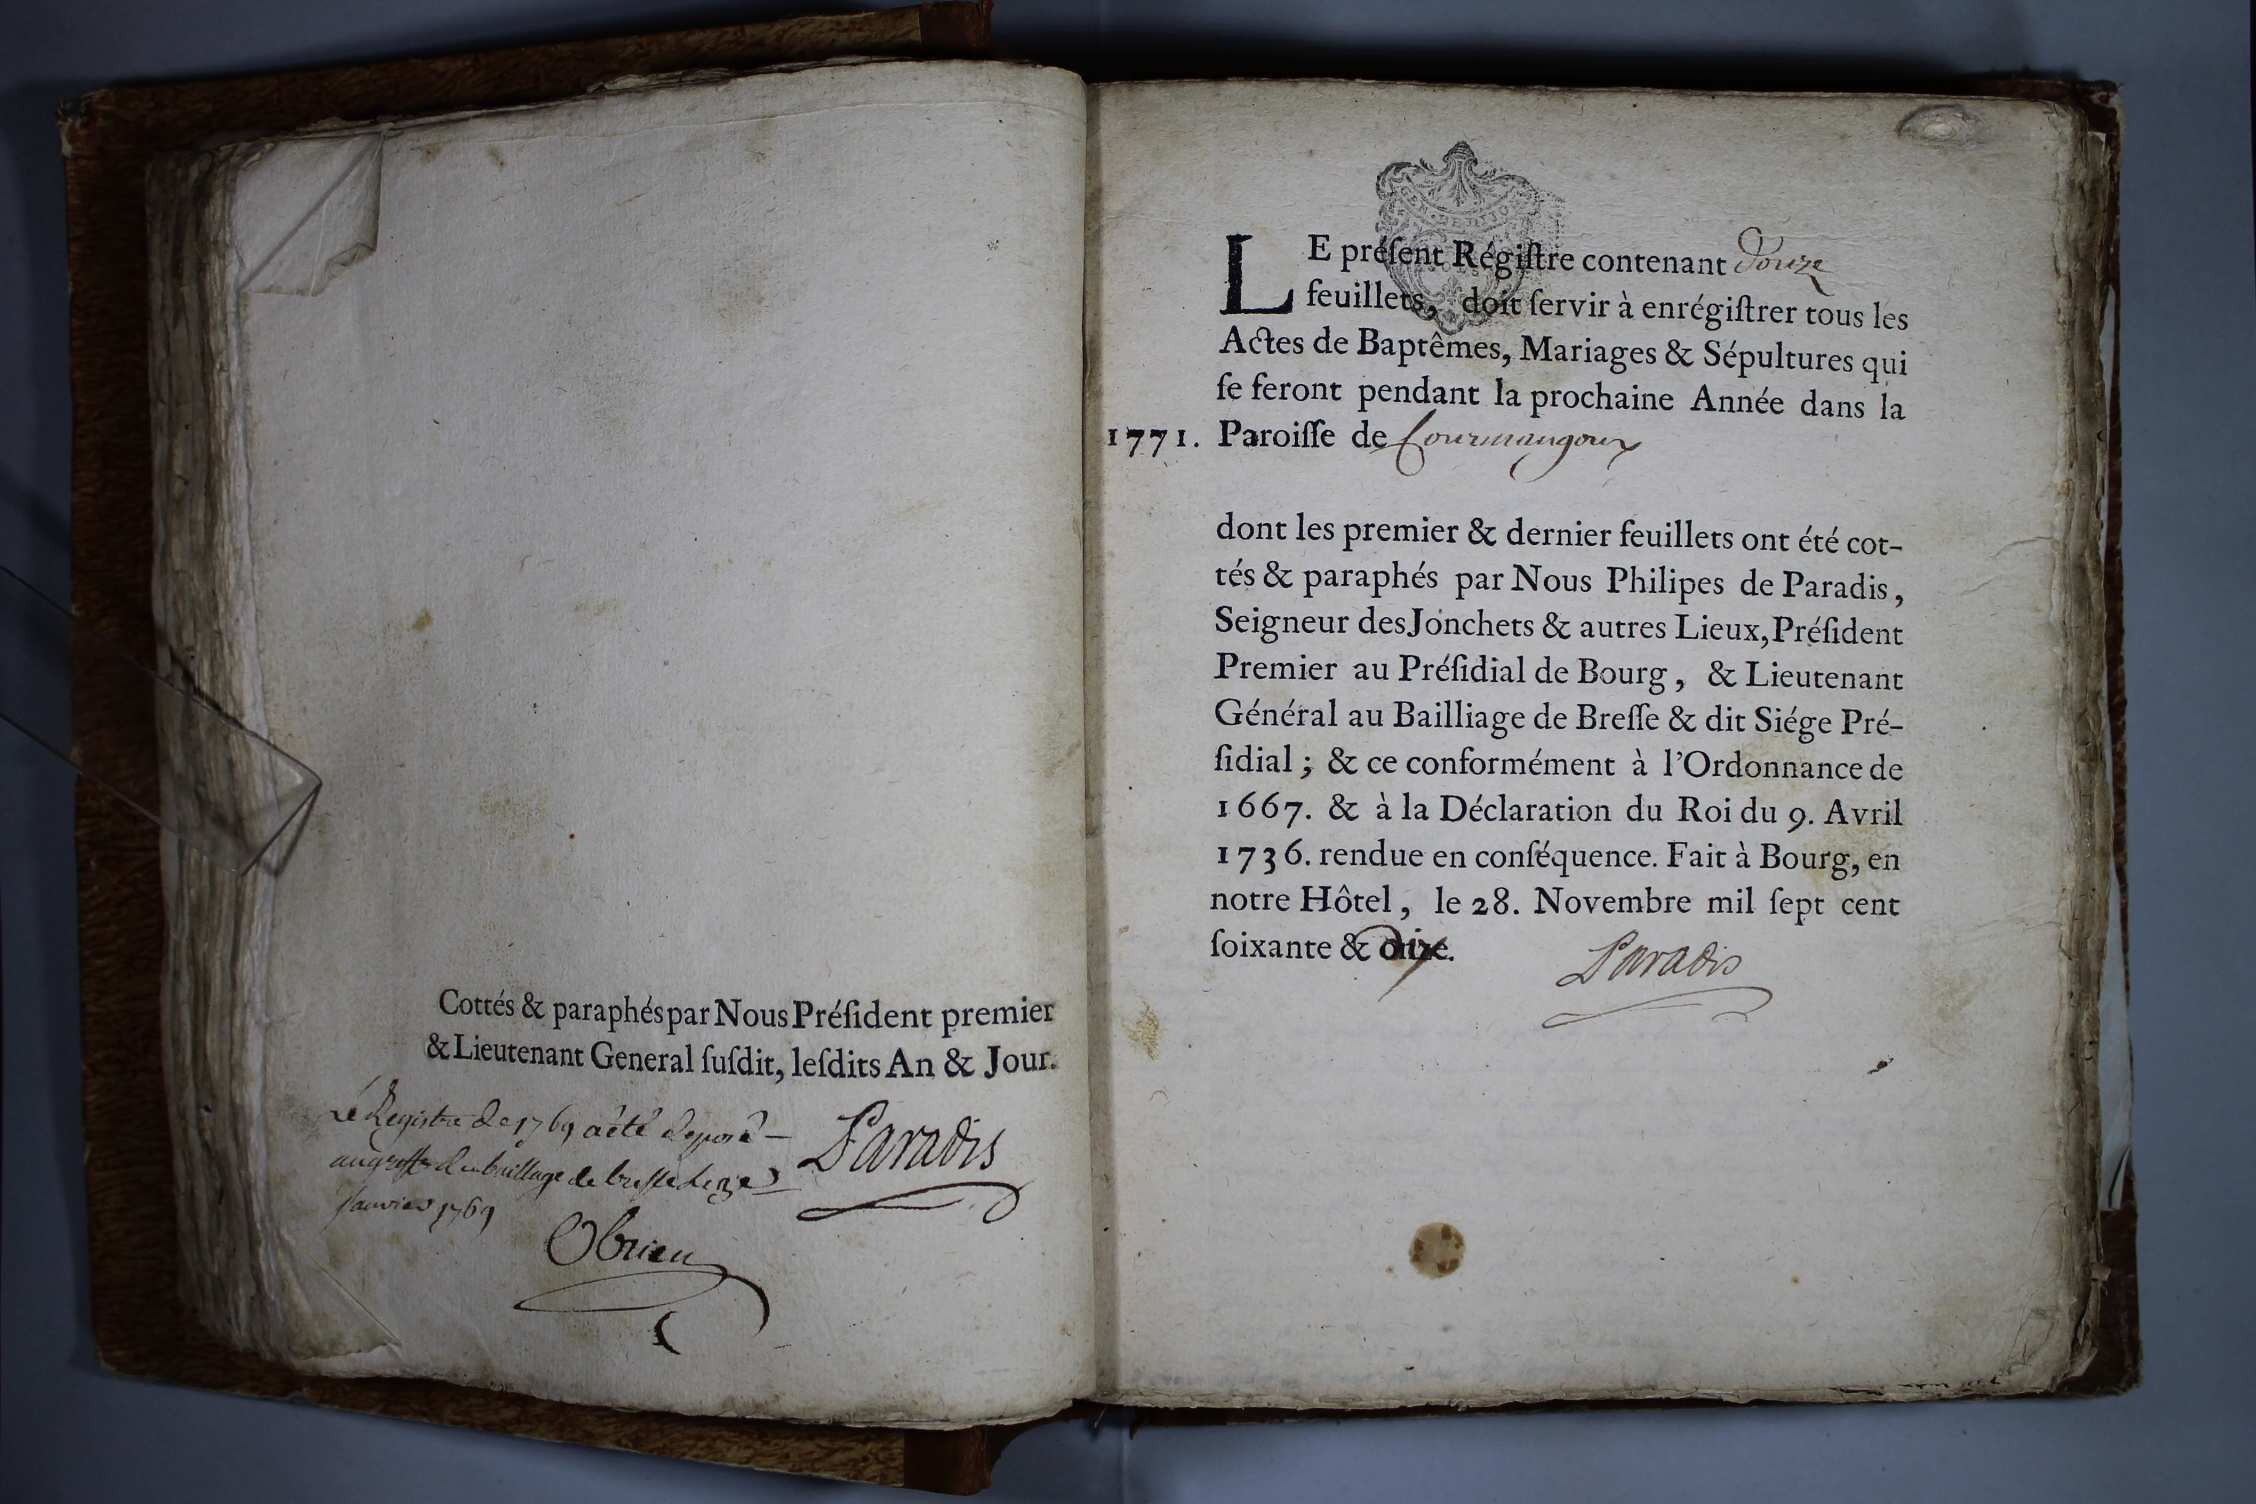 Cottés & paraphés par Nous Préſident premier
& Lieutenant General ſuſdit, leſdits An & Jour.
Le Registre de 1769 a été deposé
au greffe du bailliage de bresse le
Janvier 1769
Paradis
Obrien
GEN. DE DIJO
LE préſent Régiſtre contenant douze
feuillets, doit ſervir à enrégiſtrer tous les
Actes de Baptêmes, Mariages & Sépultures qui
ſe feront pendant la prochaine Année dans la
1771. Paroiſſe de Courmangoux
dont les premier & dernier feuillets ont été cot-
tés & paraphés par Nous Philipes de Paradis,
Seigneur des Jonchets & autres Lieux, Préſident
Premier au Préſidial de Bourg, & Lieutenant
Général au Bailliage de Breſſe & dit Siége Pré-
ſidial; & ce conformément à l'Ordonnance de
1667. & à la Déclaration du Roi du 9. Avril
1736. rendue en conſéquence. Fait à Bourg, en
notre Hôtel, le 28. Novembre mil ſept cent
ſoixante & dix.
Paradis